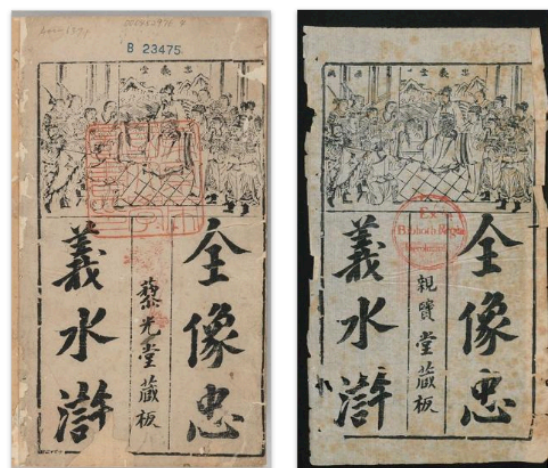 B 23475
忠義堂
全像忠
藜光堂藏板
義水滸
忠義堂
Ex
Biblioth. Regia
全像忠
親賢堂藏板
義水滸